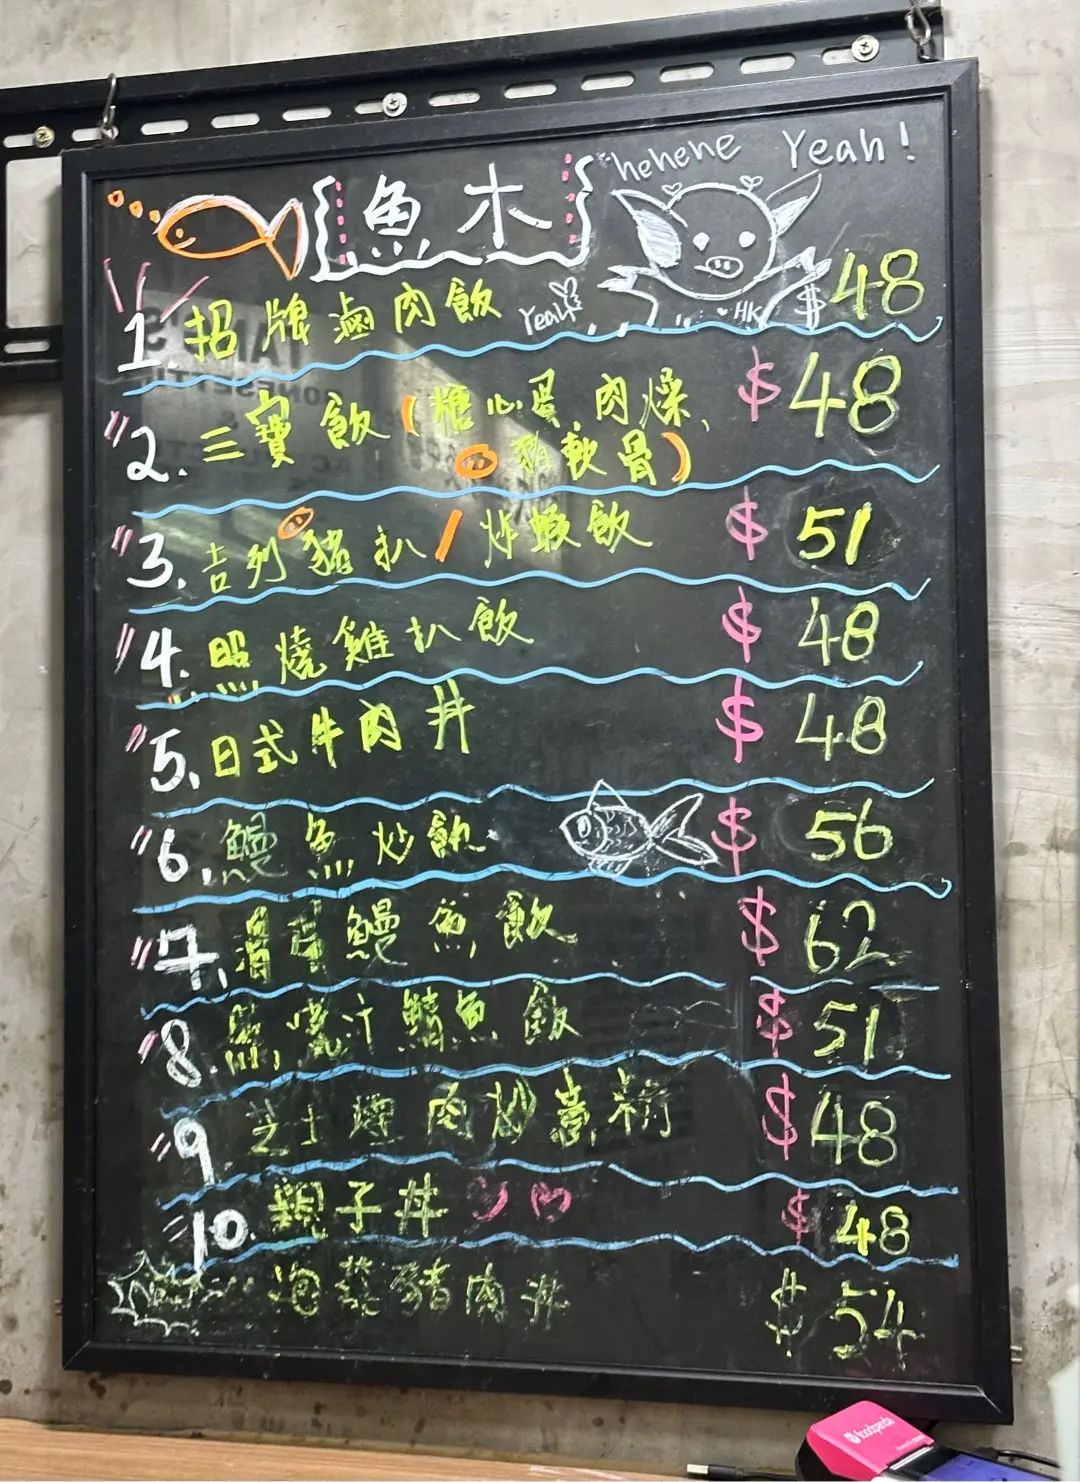 hehene Yeah!
魚木
1. 招牌滷肉飯 Yeah HK $48
2. 三寶飯(糖心蛋,肉燥, $48
豬軟骨)
3. 吉列豬扒/炸蝦飯 $51
4. 照燒雞扒飯 $48
5. 日式牛肉丼 $48
6. 鰻魚炒飯 $56
7. 鰻魚飯 $62
8. 燒汁鯖魚飯 $51
9. 芝士 肉炒 $48
10. 親子丼 $48
泡菜豬肉丼 $54
foodpanda